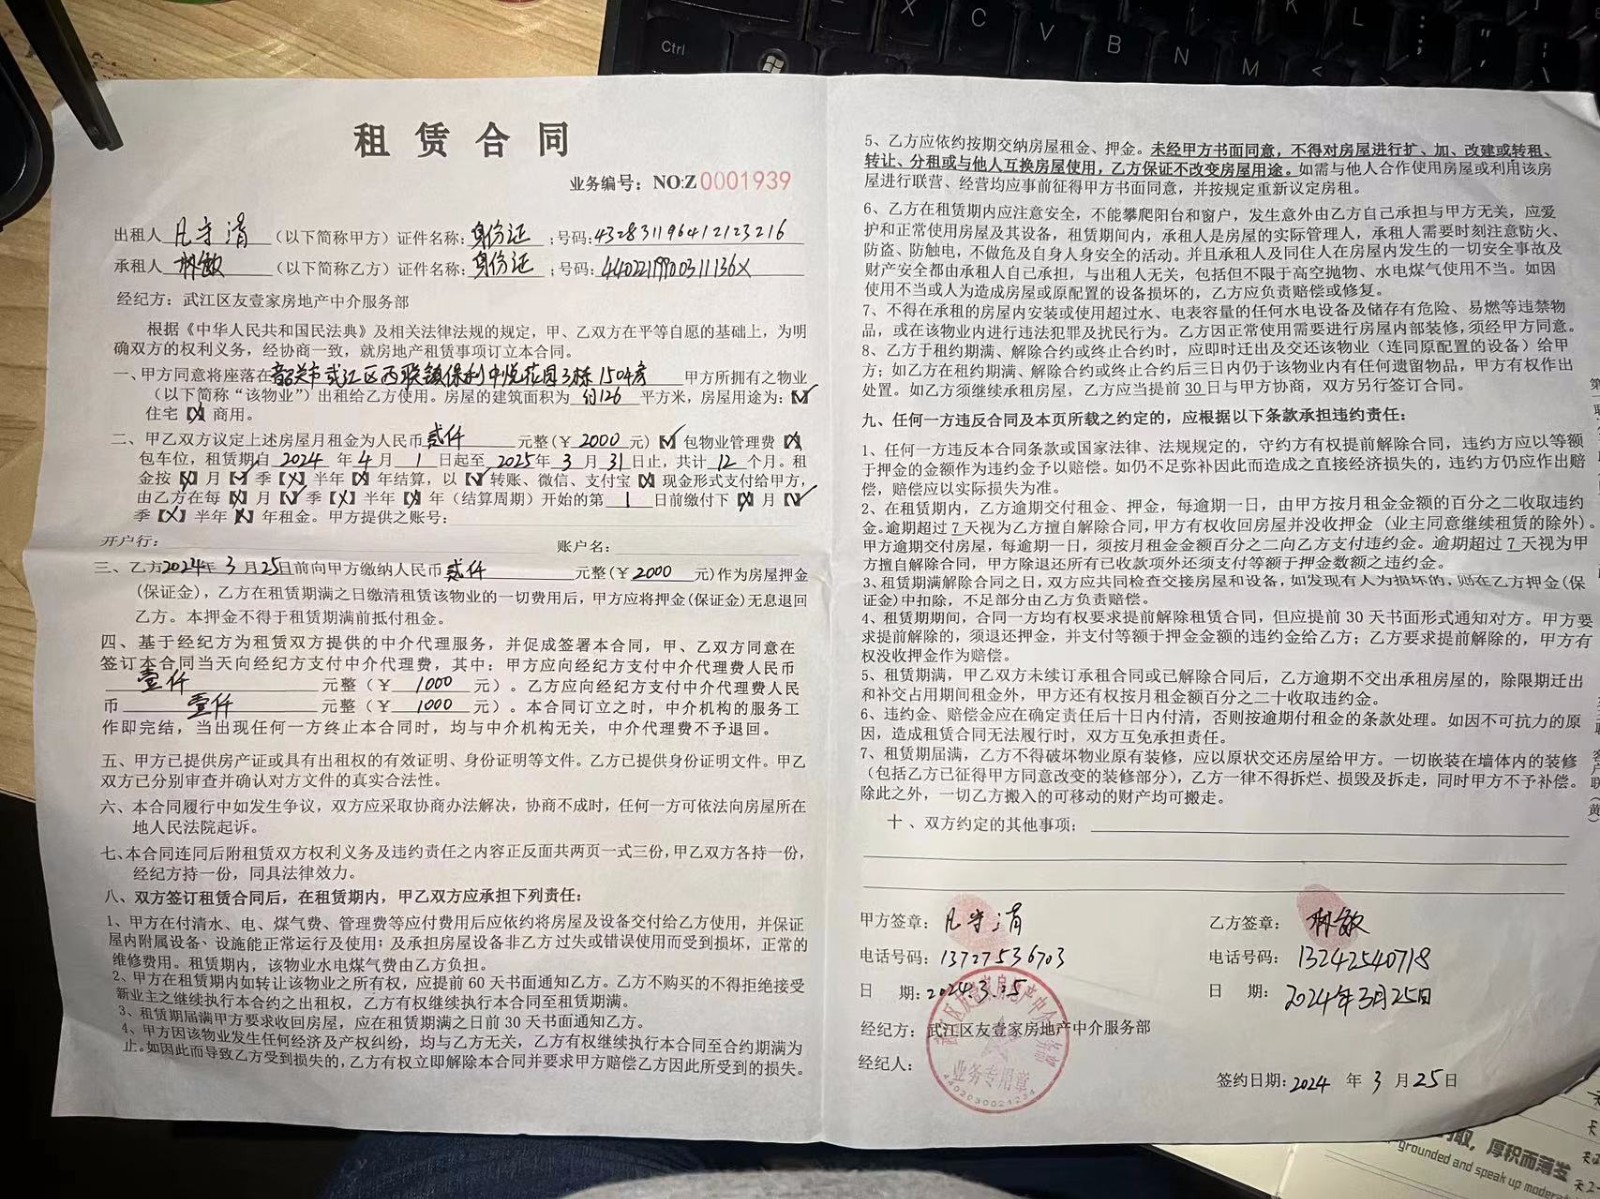 租赁合同
业务编号：NO:Z0001939
出租人 凡守清 （以下简称甲方）证件名称：身份证；号码：432831196412123216
承租人 林敏 （以下简称乙方）证件名称：身份证；号码：44022119900311136X
经纪方：武江区友壹家房地产中介服务部
根据《中华人民共和国民法典》及相关法律法规的规定，甲、乙双方在平等自愿的基础上，为明
确双方的权利义务，经协商一致，就房地产租赁事项订立本合同。
一、甲方同意将座落在韶关市武江区西联镇保利中悦花园3栋1504房 甲方所拥有之物业
（以下简称“该物业”）出租给乙方使用。房屋的建筑面积为 约126 平方米，房屋用途为：【✓】
住宅【X】商用。
二、甲乙双方议定上述房屋月租金为人民币 贰仟 元整(￥ 2000 元)【✓】包物业管理费【X】
包车位，租赁期自 2024 年 4 月 1 日起至 2025 年 3 月 31 日止，共计 12 个月。租
金按【X】月【✓】季【X】半年【X】年结算，以【✓】转账、微信、支付宝【X】现金形式支付给甲方，
由乙方在每【X】月【✓】季【X】半年【X】年（结算周期）开始的第 1 日前缴付下【X】月【✓】
季【X】半年【X】年租金。甲方提供之账号：
开户行： 账户名：
三、乙方2024年 3 月 25日前向甲方缴纳人民币 贰仟 元整(￥ 2000 元)作为房屋押金
(保证金)，乙方在租赁期满之日缴清租赁该物业的一切费用后，甲方应将押金(保证金)无息退回
乙方。本押金不得于租赁期满前抵付租金。
四、基于经纪方为租赁双方提供的中介代理服务，并促成签署本合同，甲、乙双方同意在
签订本合同当天向经纪方支付中介代理费，其中：甲方应向经纪方支付中介代理费人民币
壹仟 元整（￥ 1000 元）。乙方应向经纪方支付中介代理费人民
币 壹仟 元整（￥ 1000 元）。本合同订立之时，中介机构的服务工
作即完结，当出现任何一方终止本合同时，均与中介机构无关，中介代理费不予退回。
五、甲方已提供房产证或具有出租权的有效证明、身份证明等文件。乙方已提供身份证明文件。甲乙
双方已分别审查并确认对方文件的真实合法性。
六、本合同履行中如发生争议，双方应采取协商办法解决，协商不成时，任何一方可依法向房屋所在
地人民法院起诉。
七、本合同连同后附租赁双方权利义务及违约责任之内容正反面共两页一式三份，甲乙双方各持一份，
经纪方持一份，同具法律效力。
八、双方签订租赁合同后，在租赁期内，甲乙双方应承担下列责任：
1、甲方在付清水、电、煤气费、管理费等应付费用后应依约将房屋及设备交付给乙方使用，并保证
屋内附属设备、设施能正常运行及使用；及承担房屋设备非乙方过失或错误使用而受到损坏，正常的
维修费用。租赁期内，该物业水电煤气费由乙方负担。
2、甲方在租赁期内如转让该物业之所有权，应提前60天书面通知乙方。乙方不购买的不得拒绝接受
新业主之继续执行本合约之出租权，乙方有权继续执行本合同至租赁期满。
3、租赁期届满甲方要求收回房屋，应在租赁期满之日前30天书面通知乙方。
4、甲方因该物业发生任何经济及产权纠纷，均与乙方无关，乙方有权继续执行本合同至合约期满为
止。如因此而导致乙方受到损失的，乙方有权立即解除本合同并要求甲方赔偿乙方因此所受到的损失。
5、乙方应依约按期交纳房屋租金、押金。未经甲方书面同意，不得对房屋进行扩、加、改建或转租、
转让、分租或与他人互换房屋使用，乙方保证不改变房屋用途。如需与他人合作使用房屋或利用该房
屋进行联营、经营均应事前征得甲方书面同意，并按规定重新议定房租。
6、乙方在租赁期内应注意安全，不能攀爬阳台和窗户，发生意外由乙方自己承担与甲方无关，应爱
护和正常使用房屋及其设备，租赁期间内，承租人是房屋的实际管理人，承租人需要时刻注意防火、
防盗、防触电，不做危及自身人身安全的活动。并且承租人及同住人在房屋内发生的一切安全事故及
财产安全都由承租人自己承担，与出租人无关，包括但不限于高空抛物、水电煤气使用不当。如因
使用不当或人为造成房屋或原配置的设备损坏的，乙方应负责赔偿或修复。
7、不得在承租的房屋内安装或使用超过水、电表容量的任何水电设备及储存有危险、易燃等违禁物
品，或在该物业内进行违法犯罪及扰民行为。乙方因正常使用需要进行房屋内部装修，须经甲方同意。
8、乙方于租约期满、解除合约或终止合约时，应即时迁出及交还该物业（连同原配置的设备）给甲
方；如乙方在租约期满、解除合约或终止合约后三日内仍于该物业内有任何遗留物品，甲方有权作出
处置。如乙方须继续承租房屋，乙方应当提前30日与甲方协商，双方另行签订合同。
九、任何一方违反合同及本页所载之约定的，应根据以下条款承担违约责任：
1、任何一方违反本合同条款或国家法律、法规规定的，守约方有权提前解除合同，违约方应以等额
于押金的金额作为违约金予以赔偿。如仍不足弥补因此而造成之直接经济损失的，违约方仍应作出赔
偿，赔偿应以实际损失为准。
2、在租赁期内，乙方逾期交付租金、押金，每逾期一日，由甲方按月租金金额的百分之二收取违约
金。逾期超过7天视为乙方擅自解除合同，甲方有权收回房屋并没收押金（业主同意继续租赁的除外）。
甲方逾期交付房屋，每逾期一日，须按月租金金额百分之二向乙方支付违约金。逾期超过7天视为甲
方擅自解除合同，甲方除退还所有已收款项外还须支付等额于押金数额之违约金。
3、租赁期满解除合同之日，双方应共同检查交接房屋和设备，如发现有人为损坏的，则在乙方押金(保
证金)中扣除，不足部分由乙方负责赔偿。
4、租赁期期间，合同一方均有权要求提前解除租赁合同，但应提前30天书面形式通知对方。甲方要
求提前解除的，须退还押金，并支付等额于押金金额的违约金给乙方；乙方要求提前解除的，甲方有
权没收押金作为赔偿。
5、租赁期满，甲乙双方未续订承租合同或已解除合同后，乙方逾期不交出承租房屋的，除限期迁出
和补交占用期间租金外，甲方还有权按月租金额百分之二十收取违约金。
6、违约金、赔偿金应在确定责任后十日内付清，否则按逾期付租金的条款处理。如因不可抗力的原
因，造成租赁合同无法履行时，双方互免承担责任。
7、租赁期届满，乙方不得破坏物业原有装修，应以原状交还房屋给甲方。一切嵌装在墙体内的装修
（包括乙方已征得甲方同意改变的装修部分），乙方一律不得拆烂、损毁及拆走，同时甲方不予补偿。
除此之外，一切乙方搬入的可移动的财产均可搬走。
十、双方约定的其他事项：
甲方签章：凡守清 乙方签章：林敏
电话号码：13727536703 电话号码：13242540718
日 期：2024.3.25 日 期：2024年3月25日
经纪方：武江区友壹家房地产中介服务部
经纪人：
签约日期：2024 年 3 月 25 日
业务专用章
厚积而薄发
grounded and speak up